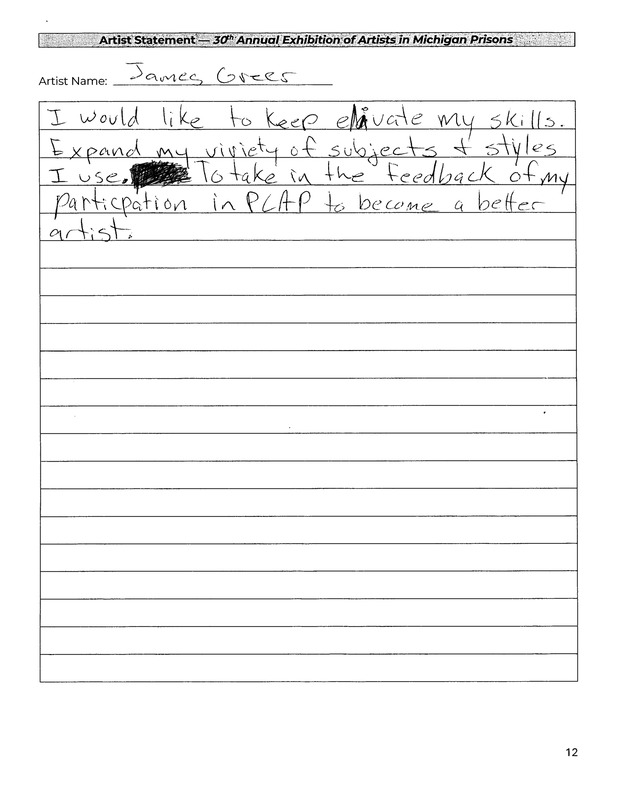 Artist Statement — 30th Annual Exhibition of Artists in Michigan Prisons
Artist Name: James Greer
I would like to keep elivate my skills.
Expand my viriety of subjects & styles
I use. To take in the feedback of my
particpation in PCAP to become a better
artist.
12